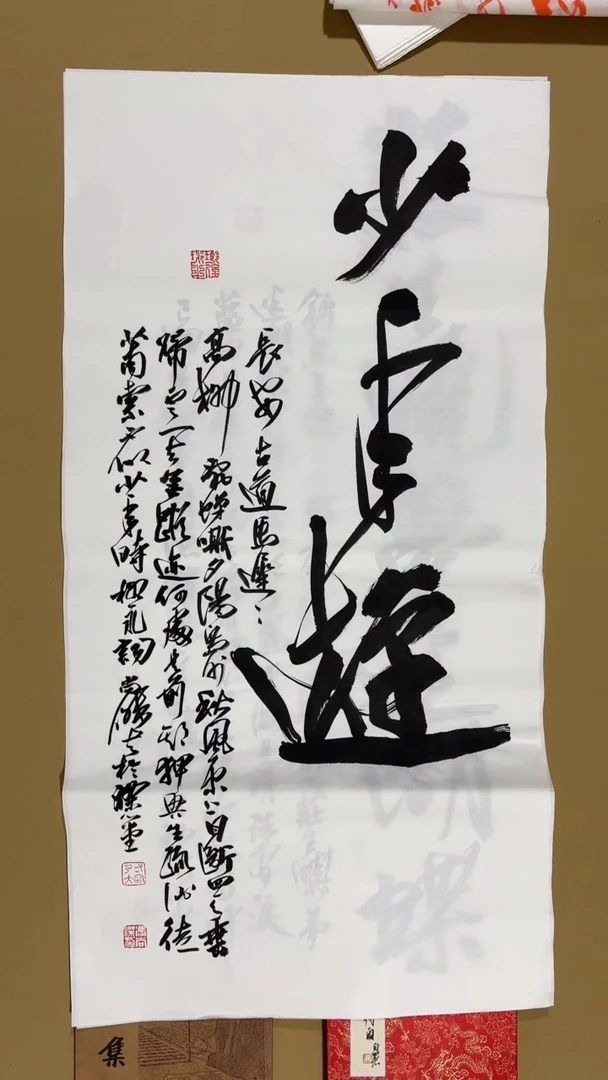 少年遊
長安古道馬遲〻
高柳亂蟬嘶夕陽島外秋風原上目斷四天垂
歸雲一去無蹤迹何處是前期狎興生疏酒徒
蕭索不似少年時柳永詞
集